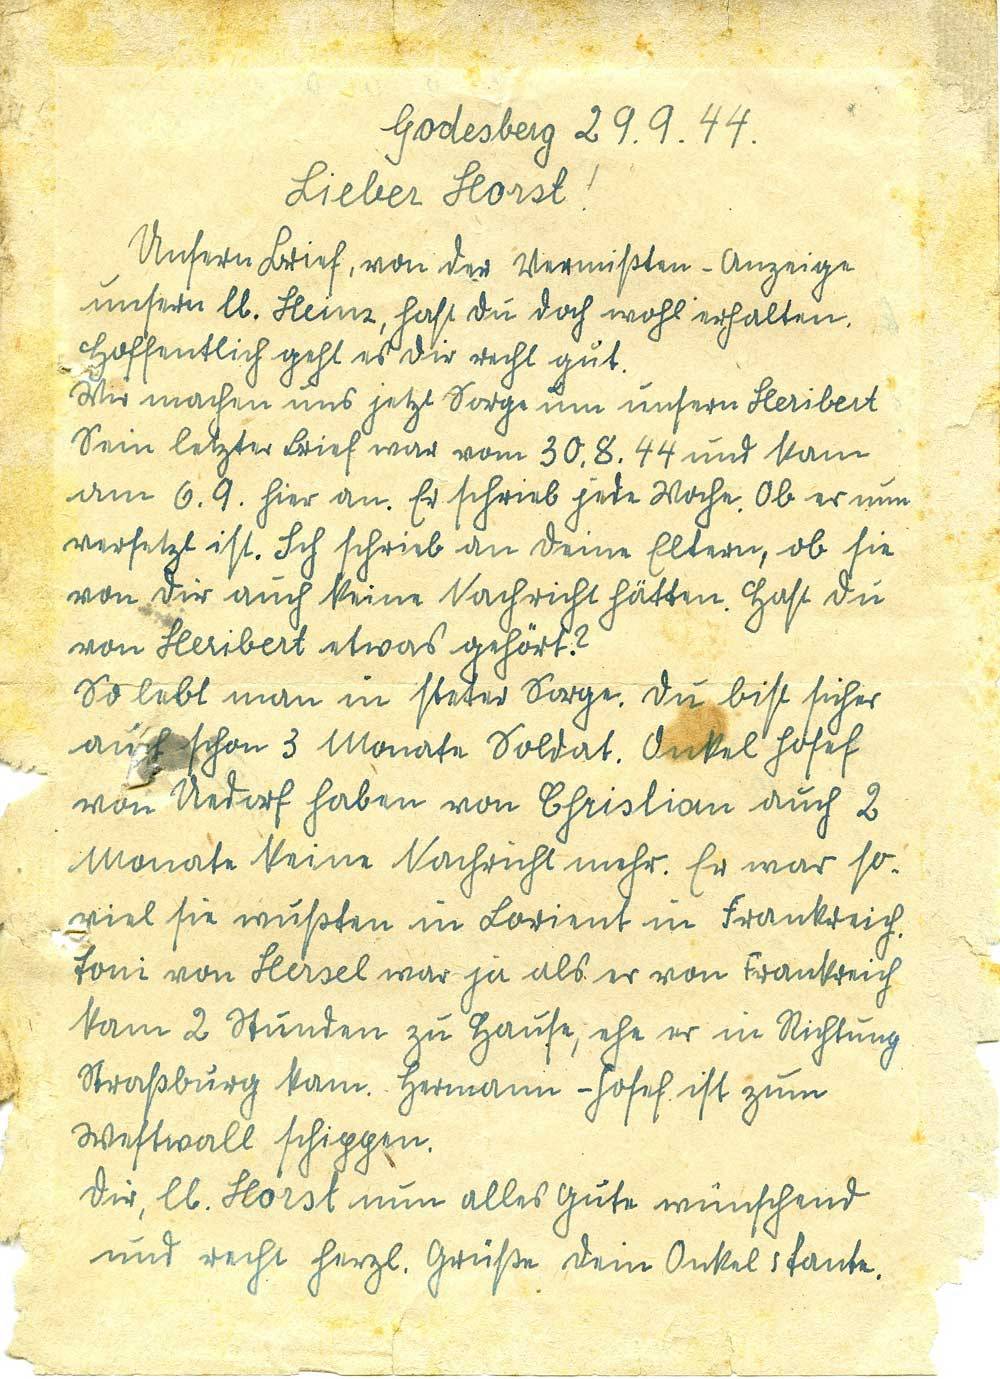 Godesberg 29.9.44.
Lieber Horst!
Unsern Brief, von der Vermißten-Anzeige
unsern lb. Heinz, hast Du doch wohl erhalten.
Hoffentlich geht es Dir recht gut.
Wir machen uns jetzt Sorge um unsern Heribert
Sein letzter Brief war vom 30.8.44 und kam
am 6.9. hier an. Er schrieb jede Woche. Ob er nun
versetzt ist. Ich schrieb an Deine Eltern, ob sie
von Dir auch keine Nachricht hätten. Hast Du
von Heribert etwas gehört?
So lebt man in steter Sorge. Du bist sicher
auch schon 3 Monate Soldat. Onkel Josef
von Uedorf haben von Christian auch 2
Monate keine Nachricht mehr. Er war so-
viel sie wußten in Lorient in Frankreich.
Toni von Hersel war ja als er von Frankreich
kam 2 Stunden zu Hause, ehe er in Richtung
Straßburg kam. Hermann-Josef ist zum
Westwall schippen.
Dir, lb. Horst nun alles Gute wünschend
und recht herzl. Grüße Dein Onkel s Tante.